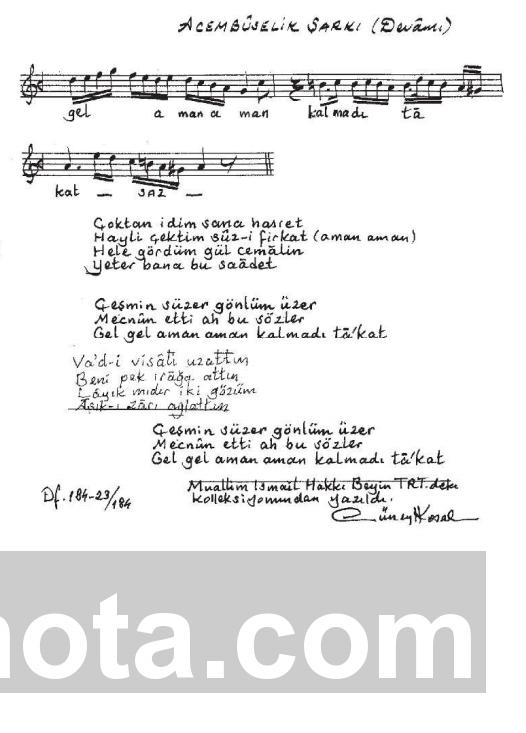 ACEMBÛSELİK ŞARKI (Devâmı)
gel a man a man kal madı tā
kat — SAZ —
Çoktan idim sana hasret
Hayli çektim sûz-i firkat (aman aman)
Hele gördüm gül cemâlin
Yeter bana bu saâdet
Çeşmin süzer gönlüm üzer
Mecnûn etti ah bu sözler
Gel gel aman aman kalmadı tā'kat
Va'd-i visâli uzattın
Beni pek irâğa attın
Lâyık mıdır iki gözüm
Âşık-ı zârı ağlattın
Çeşmin süzer gönlüm üzer
Mecnûn etti ah bu sözler
Gel gel aman aman kalmadı tā'kat
Df. 184-23/184
Muallim İsmail Hakkı Beyin TRT.deki
kolleksiyonundan yazıldı.
Cüneyt Kosal
nota.com